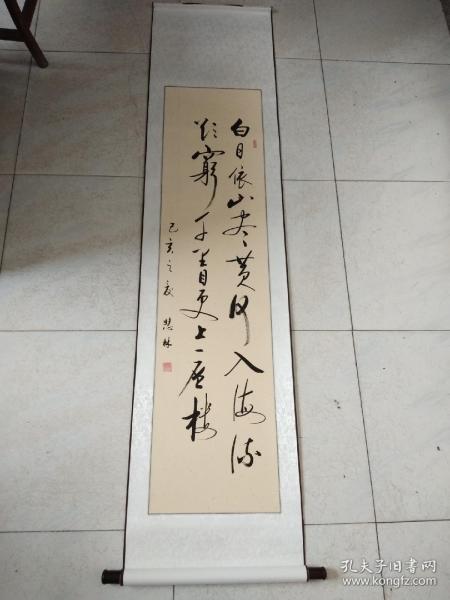 白日依山尽黄河入海流
欲穷千里目更上一层楼
己亥之
孔夫子旧书网
www.kongfz.com